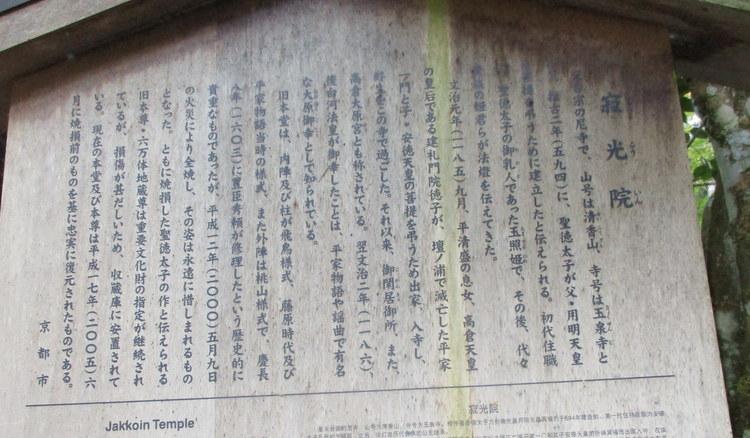 寂光院
天台宗の尼寺で、山号は清香山、寺号は玉泉寺と
推古二年(五九四)に、聖徳太子が父・用明天皇
を弔うために建立したと伝えられる。初代住職
聖徳太子の御乳人であった玉照姫で、その後、代々
の姫君らが法燈を伝えてきた。
文治元年(一一八五)九月、平清盛の息女、高倉天皇
の皇后である建礼門院徳子が、壇ノ浦で滅亡した平家
一門と子・安徳天皇の菩提を弔うため出家、入寺し、
終生をこの寺で過ごした。それ以来、御閑居御所、また、
高倉大原宮とも称されている。翌文治二年(一一八六)、
後白河法皇が御幸したことは、平家物語や謡曲で有名
な大原御幸として知られている。
旧本堂は、内陣及び柱が飛鳥様式、藤原時代及び
平家物語当時の様式、また外陣は桃山様式で、慶長
八年(一六〇三)に豊臣秀頼が修理したという歴史的に
貴重なものであったが、平成一二年(二〇〇〇)五月九日
の火災により全焼し、その姿は永遠に惜しまれるもの
となった。ともに焼損した聖徳太子の作と伝えられる
旧本尊・六万体地蔵尊は重要文化財の指定が継続され
ているが、損傷が甚だしいため、収蔵庫に安置されて
いる。現在の本堂及び本尊は平成一七年(二〇〇五)六
月に焼損前のものを基に忠実に復元されたものである。
京都市
Jakkoin Temple
寂光院